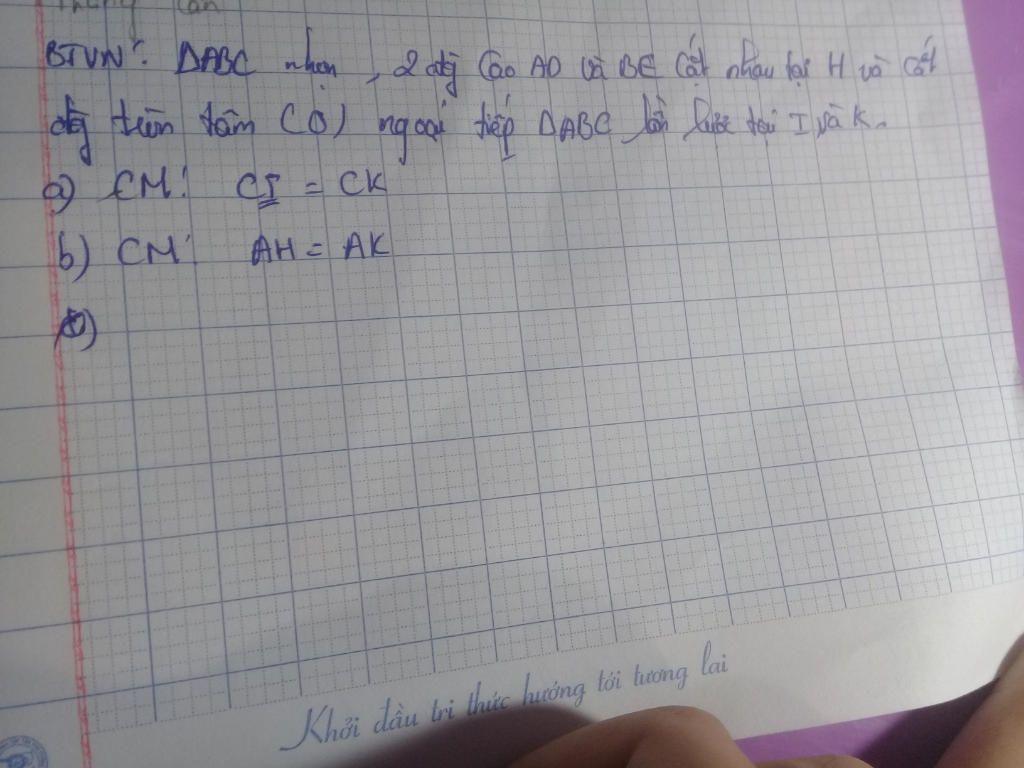 BTVN: ΔABC nhọn, 2 đg cao AD và BE cắt nhau tại H và cắt
đg tròn tâm (O) ngoại tiếp ΔABC lần lượt tại I và K.
a) CM: CI = CK
b) CM: AH = AK
c)
Khởi đầu tri thức hướng tới tương lai